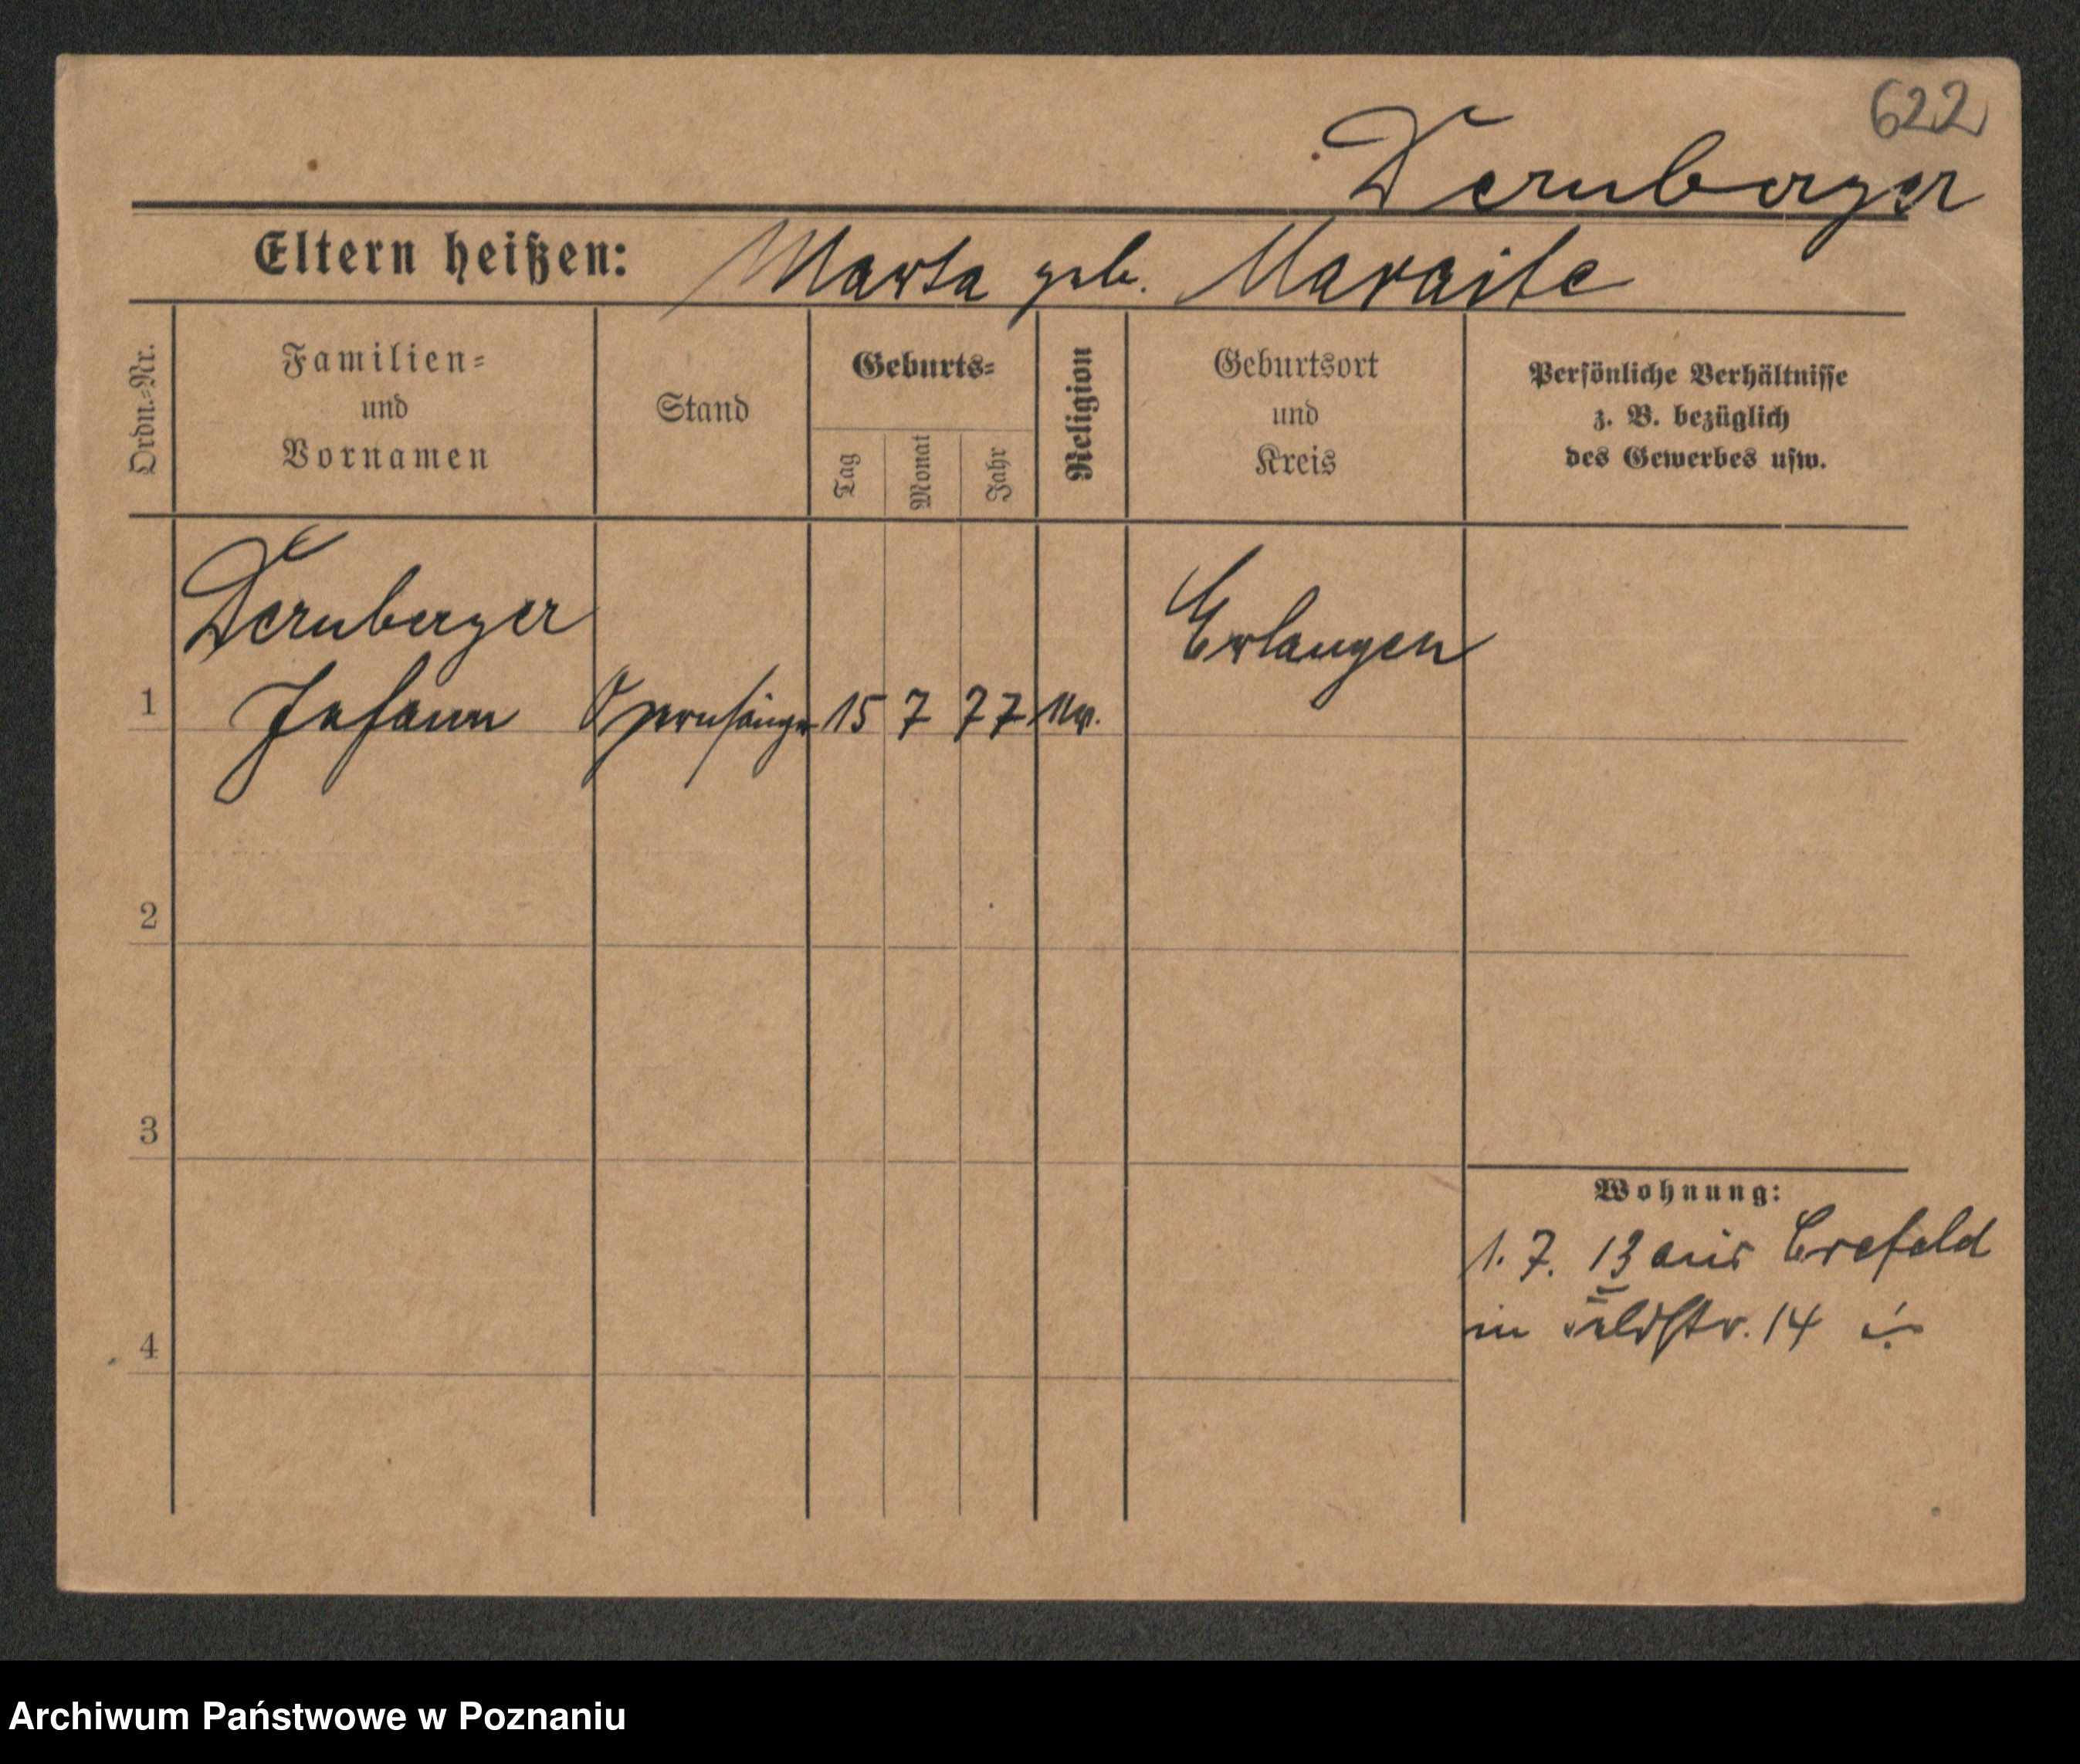 622
Dernberger
Eltern heißen: Marta geb. Maraite
Ordn.-Nr.
Familien-
und
Vornamen
Stand
Geburts-
Tag
Monat
Jahr
Religion
Geburtsort
und
Kreis
Persönliche Verhältnisse
z. B. bezüglich
des Gewerbes usw.
Dernberger
Erlangen
1 Johann Opernsänger 15 7 77
2
3
4
Wohnung:
1. 7. 13 aus Crefeld
in Feldstr. 14
Archiwum Państwowe w Poznaniu